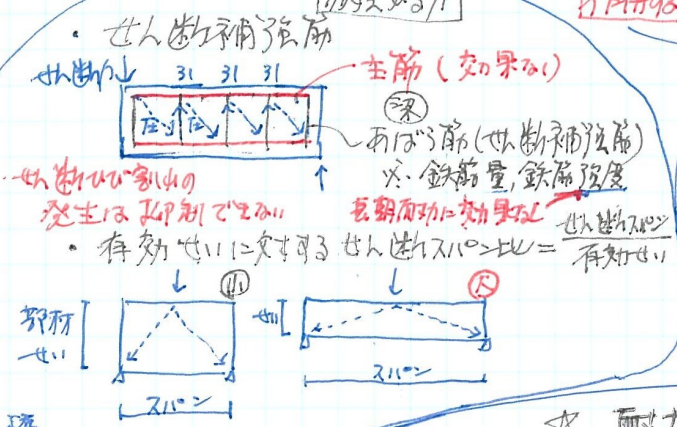 ・せん断補強筋
せん断力
引 引 引
主筋(効果ない)
梁
圧 圧
あばら筋(せん断補強筋)
※ 鉄筋量, 鉄筋強度
せん断ひび割れの
発生は抑制できない
長期荷重に効果なし
・有効せいに対するせん断スパン比 = せん断スパン
有効せい
小
大
部材
せい
せい
スパン
スパン